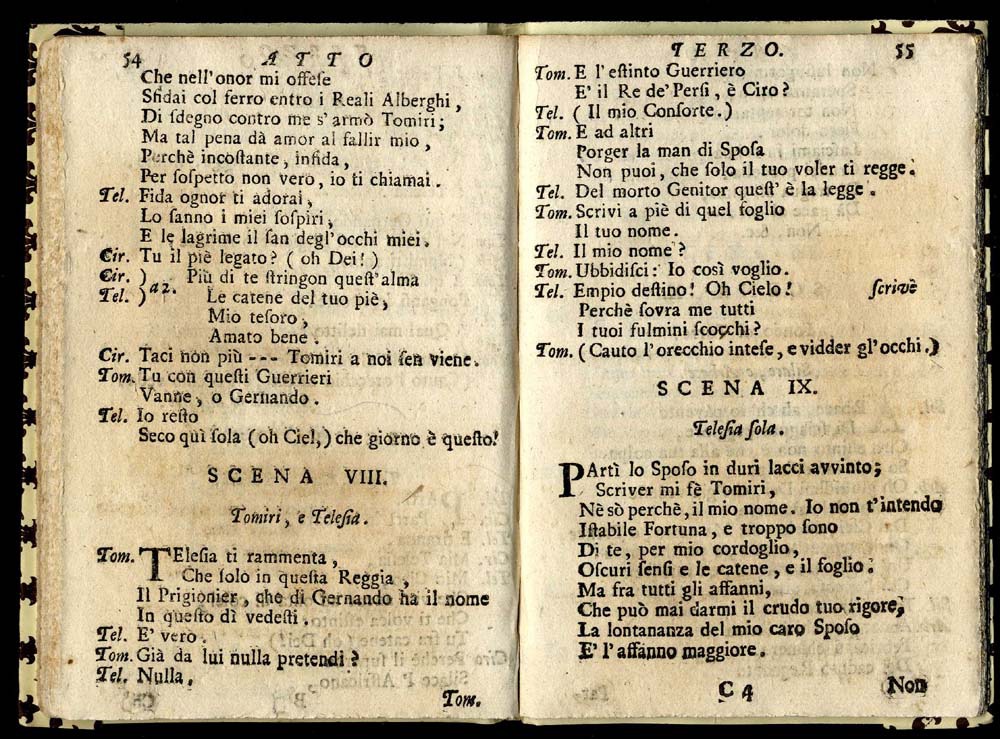 54 ATTO
Che nell'onor mi offeſe
Sfidai col ferro entro i Reali Alberghi,
Di ſdegno contro me s'armò Tomiri;
Ma tal pena dà amor al fallir mio,
Perchè incoſtante, infida,
Per ſoſpetto non vero, io ti chiamai.
Tel. Fida ognor ti adorai,
Lo ſanno i miei ſoſpiri,
E le lagrime il ſan degl'occhi miei.
Cir. Tu il piè legato? (oh Dei!)
Cir. ) Più di te ſtringon queſt'alma
a 2.
Tel. ) Le catene del tuo piè,
Mio teſoro,
Amato bene.
Cir. Taci non più --- Tomiri a noi ſen viene.
Tom. Tu con queſti Guerrieri
Vanne, o Gernando.
Tel. Io reſto
Seco quì ſola (oh Ciel,) che giorno è queſto!
SCENA VIII.
Tomiri, e Teleſia.
Tom. TEleſia ti rammenta,
Che ſolo in queſta Reggia,
Il Prigionier, che di Gernando ha il nome
In queſto dì vedeſti.
Tel. E' vero.
Tom. Già da lui nulla pretendi?
Tel. Nulla.
Tom.
TERZO. 55
Tom. E l'eſtinto Guerriero
E' il Re de' Perſi, è Ciro?
Tel. (Il mio Conſorte.)
Tom. E ad altri
Porger la man di Spoſa
Non puoi, che ſolo il tuo voler ti regge.
Tel. Del morto Genitor queſt' è la legge.
Tom. Scrivi a piè di quel foglio
Il tuo nome.
Tel. Il mio nome?
Tom. Ubbidiſci: Io così voglio.
Tel. Empio deſtino! Oh Cielo! ſcrivè
Perchè ſovra me tutti
I tuoi fulmini ſcocchi?
Tom. (Cauto l'orecchio inteſe, e vidder gl'occhi.)
SCENA IX.
Teleſia ſola.
PArtì lo Spoſo in duri lacci avvinto;
Scriver mi fè Tomiri,
Nè sò perchè, il mio nome. Io non t'intendo
Iſtabile Fortuna, e troppo ſono
Di te, per mio cordoglio,
Oſcuri ſenſi e le catene, e il foglio.
Ma fra tutti gli affanni,
Che può mai darmi il crudo tuo rigore,
La lontananza del mio caro Spoſo
E' l'affanno maggiore.
C 4 (Non